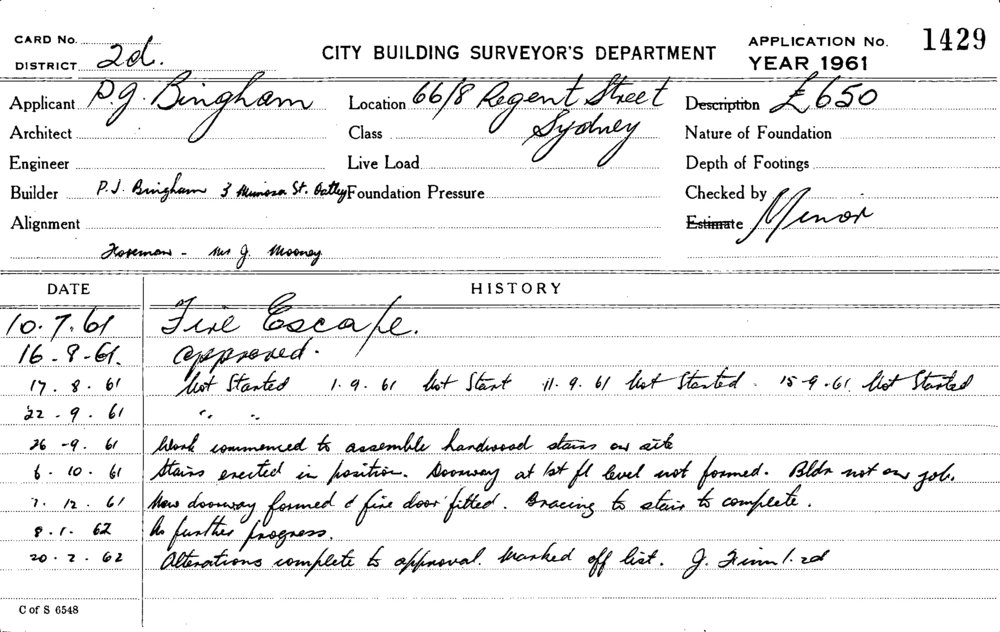 CARD No.
DISTRICT 2d.
CITY BUILDING SURVEYOR'S DEPARTMENT
APPLICATION No. 1429
YEAR 1961
Applicant P.J. Bingham Location 66/8 Regent Street Description £650
Architect Class Sydney Nature of Foundation
Engineer Live Load Depth of Footings
Builder P.J. Bingham 3 Mimosa St. Oatley Foundation Pressure Checked by
Alignment Estimate Minor
Foreman - Mr J. Mooney
DATE HISTORY
10.7.61 Fire Escape.
16-8-61. approved.
17.8.61 Not Started 1.9.61 Not Start 11.9.61 Not Started. 15-9-61 Not Started
22-9.61 " "
26-9.61 Work commenced to assemble hardwood stairs on site
6.10.61 Stairs erected in position. Doorway at 1st fl level not formed. Bldr not on job.
7.12.61 New doorway formed & fire door fitted. Bracing to stair to complete.
8.1.62 No further progress.
20.2.62 Alterations complete to approval. Marked off list. J. 2d
C of S 6548